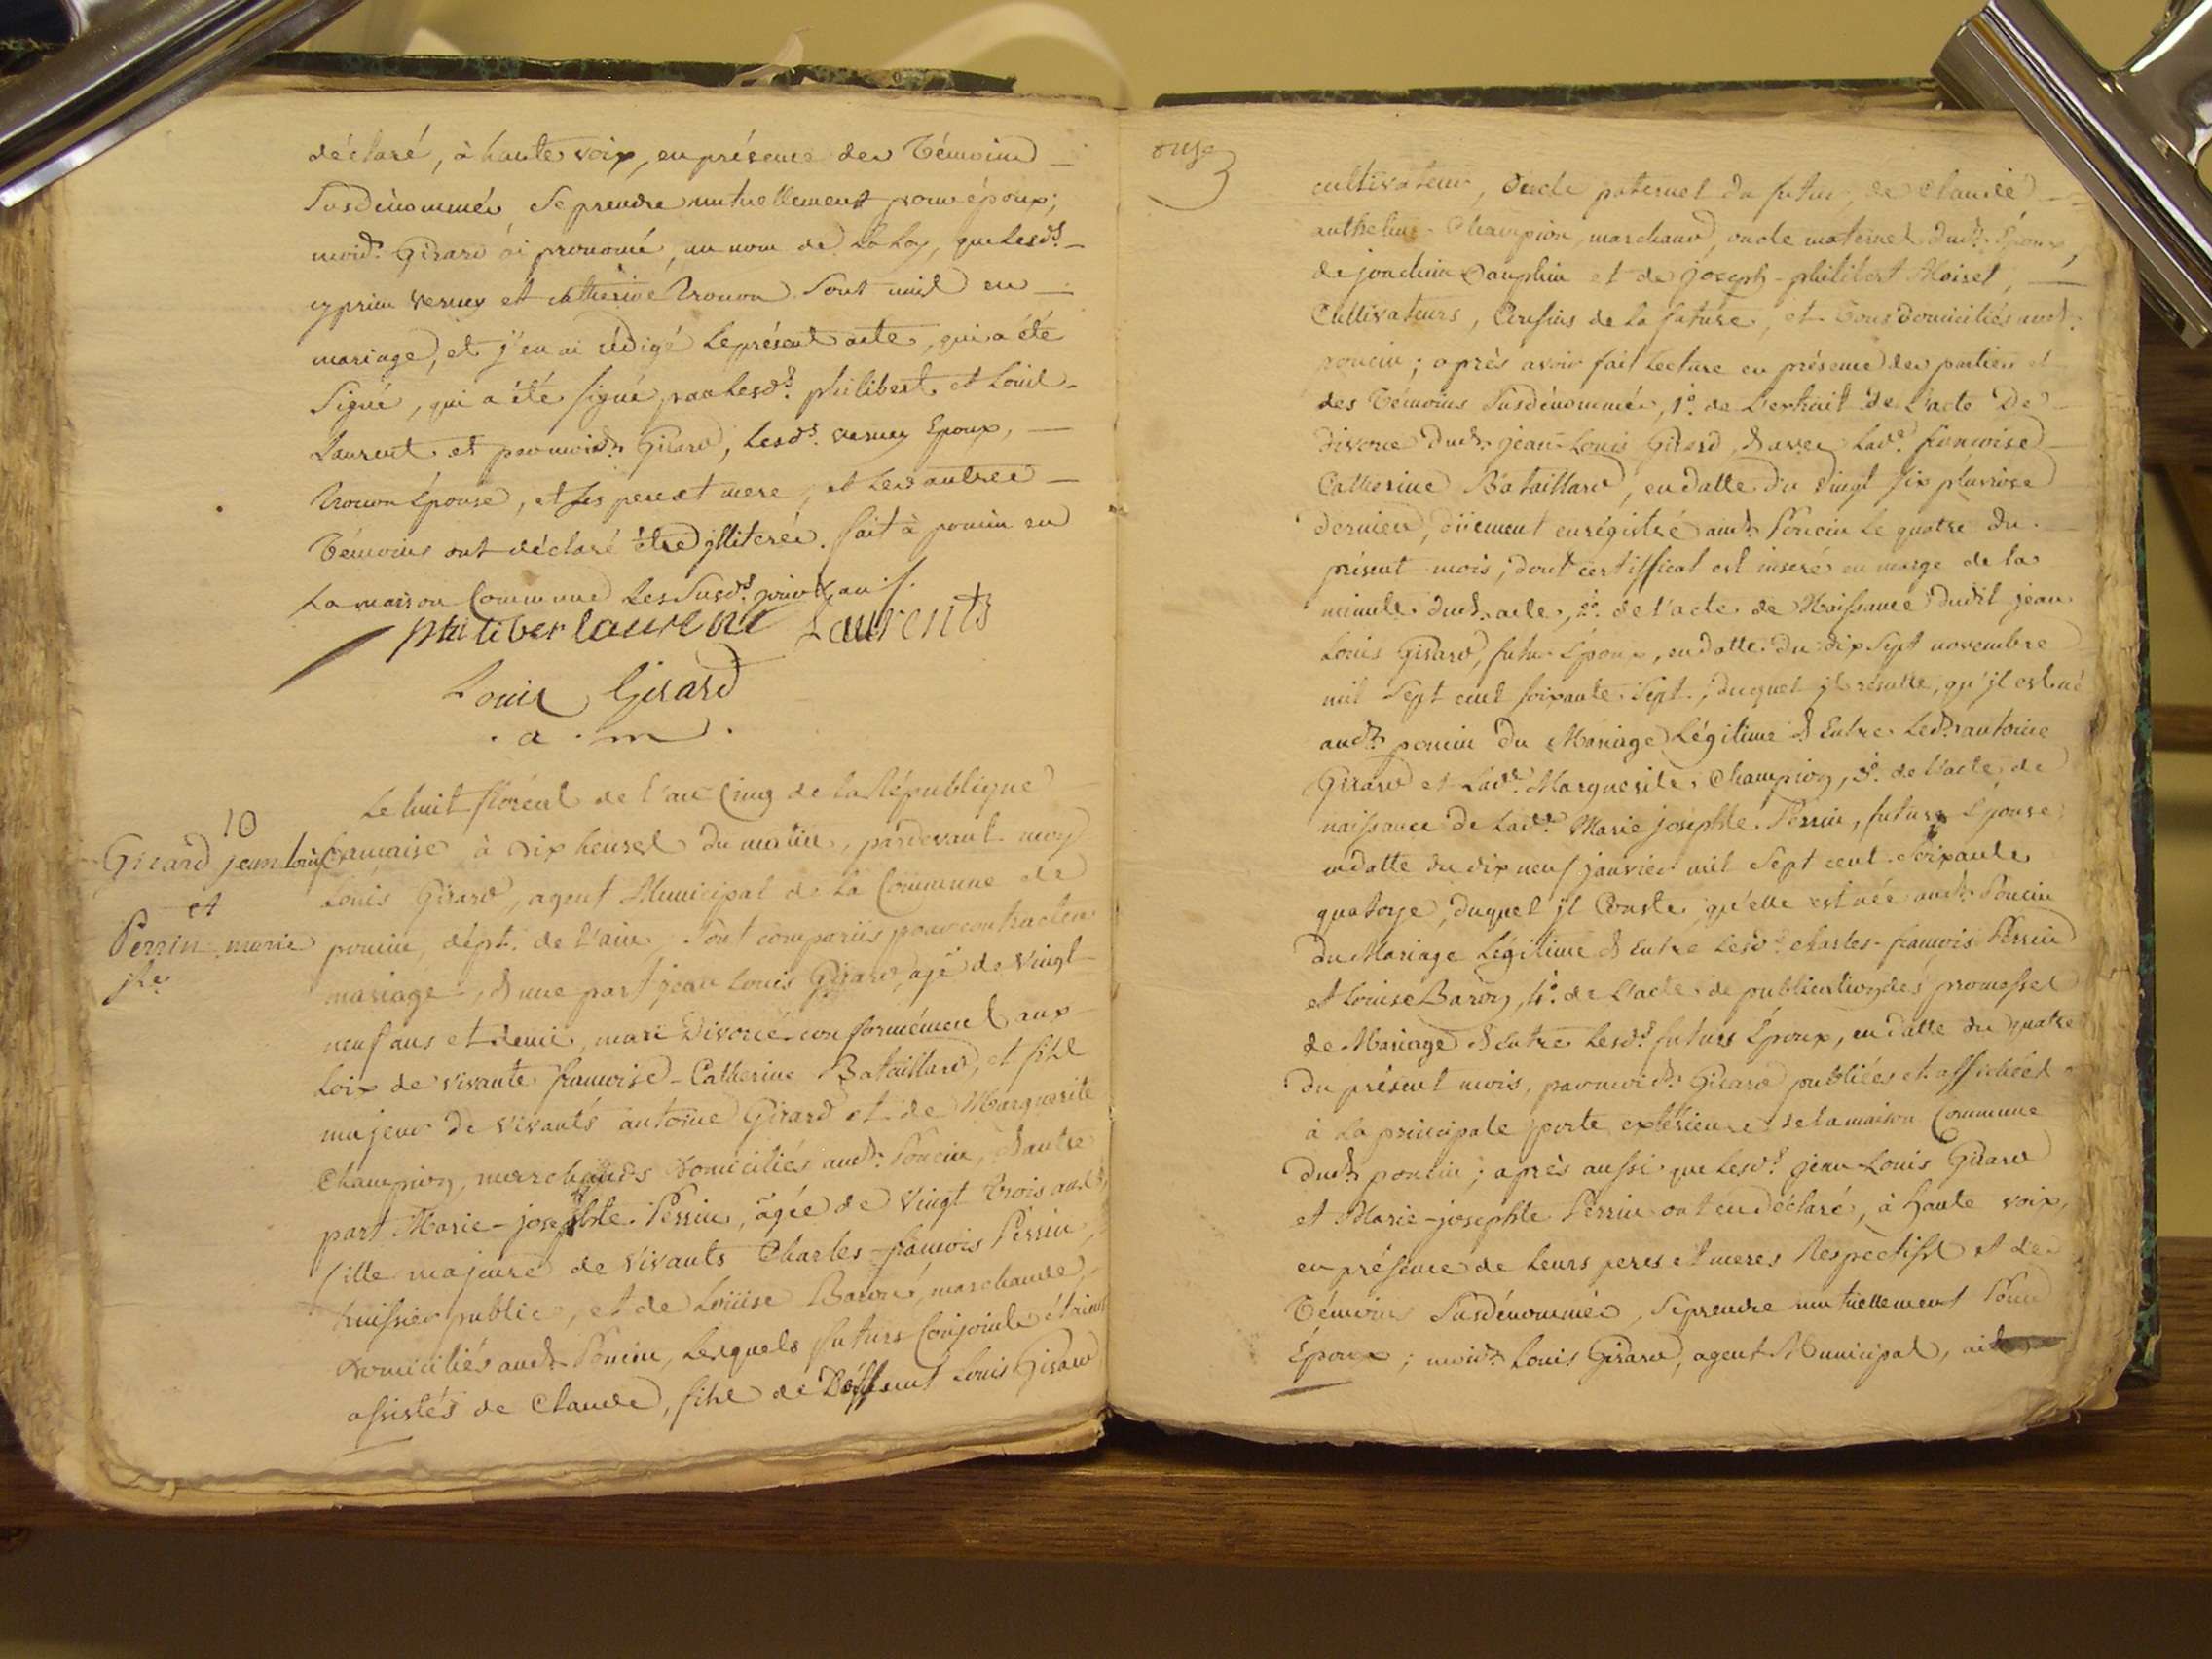 déclaré, à haute voix, en présence des Témoins
Susdénommés Se prendre mutuellement pour époux;
moid.t Girard ai prononcé, au nom de La Loy, que Lesd.s
cyprien verney et catherine Trouvon Sont unis en
mariage, et j'en ai rédigé Leprésent acte, qui a été
Signé, qui a été signé par Lesd.s philibert et Louis
Laurent et par moid.t Girard, Lesd.s verney Epoux,
Trouvon Épouse, et ses pere et mere, et Les autres
Témoins ont déclaré être jlliterés. fait à poncin en
La maison Commune Les Susd.s jour & an /.
philiber laurent Laurents
Louis Girard
. a . m .
10
Girard jean louis
et
Perrin marie
jhe
Le huit floréal de l'an Cinq de la République
francaise à dix heures du matin, pardevant moy
Louis Girard, agent Municipal de La Commune de
poncin, dépt. de l'ain, Sont comparus pour contracter
mariage, d'une part jean Louis Girard, agé de vingt
neuf ans et demi, mari Divorcé conformément aux
Loix de vivante francoise-Catherine Bataillard, et fils
majeur de vivants antoine Girard et de Marguerite
Champion, marchands Domiciliés aud.t Poncin, d'autre
part Marie-josephte Perrin, âgée de vingt trois ans,
fille majeure de vivants Charles-francois Perrin,
huissier public, et de Louise Baron, marchande,
Domiciliés aud.t Poncin, Lesquels futurs Conjoints étoient
assistés de Claude, fils de Deffunt Louis Girard
onze
cultivateur, Oncle paternel du futur, de Claude
anthelme Champion, marchand, oncle maternel dud.t Époux,
de joachim Dauphin et de joseph-philibert Moiret,
Cultivateurs, Cousins de la future, et Tous domiciliés aud.t
poncin; après avoir fait Lecture en présence des parties et
des Témoins Susdénommés, 1.º de L'extrait de L'acte De
Divorce dud.t jean-Louis Girard, d'avec Lad.e francoise
Catherine Bataillard, en datte du vingt six pluviose
dernier, düement enrégistré aud.t Poncin Le quatre du
présent mois, dont certifficat est inseré en marge de la
minute dud.t acte, 2.º de l'acte de Naissance dudit jean
Louis Girard, futur Époux, en datte du dix Sept novembre
mil Sept cent soixante Sept, duquel jl résulte, qu'jl est né
aud.t poncin du Mariage Légitime d'Entre Led.t antoine
Girard et Lad.e Marguerite Champion, 3.º de l'acte de
naissance de Lad.e Marie josephte Perrin, future Épouse,
en datte du dix neuf janvier mil Sept cent Soixante
quatorze, duquel jl Conste, qu'elle est née aud.t Poncin
du Mariage Légitime d'Entre Lesd.s charles-francois Perrin
et Louise Baron, 4.º de L'acte de publication des promesses
de Mariage d'Entre Lesd.s futurs Époux, en datte du quatre
du présent mois, par moid.t Girard publiées et affichées
à La principale porte extérieure de la maison Commune
dud.t poncin; après aussi que Lesd.s jean Louis Girard
et Marie-josephte Perrin ont eu déclaré, à haute voix,
en présence de Leurs peres et meres Respectifs et des
Témoins Susdénommés, Se prendre mutuellement Pour
Époux; moid.t Louis Girard, agent Municipal, ai